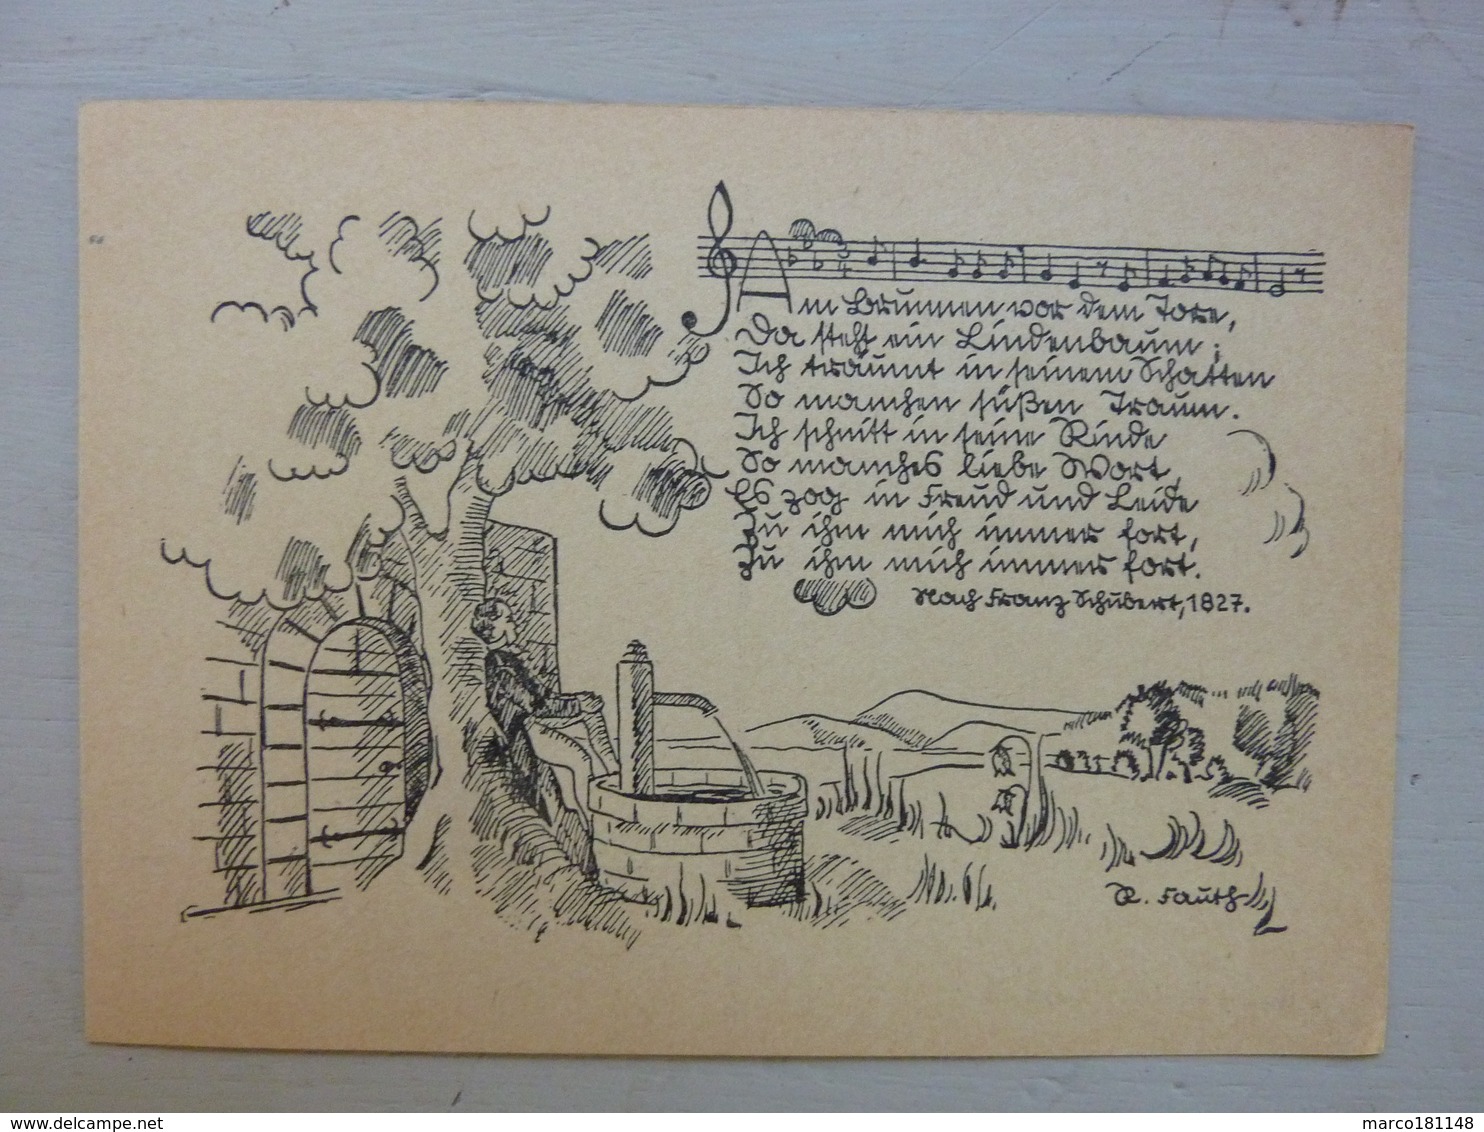 Am Brunnen vor dem Tore,
Da steht ein Lindenbaum;
Ich träumt in seinem Schatten
So manchen süßen Traum.
Ich schnitt in seine Rinde
So manches liebe Wort,
Es zog in Freud und Leide
Zu ihm mich immer fort,
Zu ihm mich immer fort.
Nach Franz Schubert, 1827.
R. Fauth
delcampe.net
marco181148